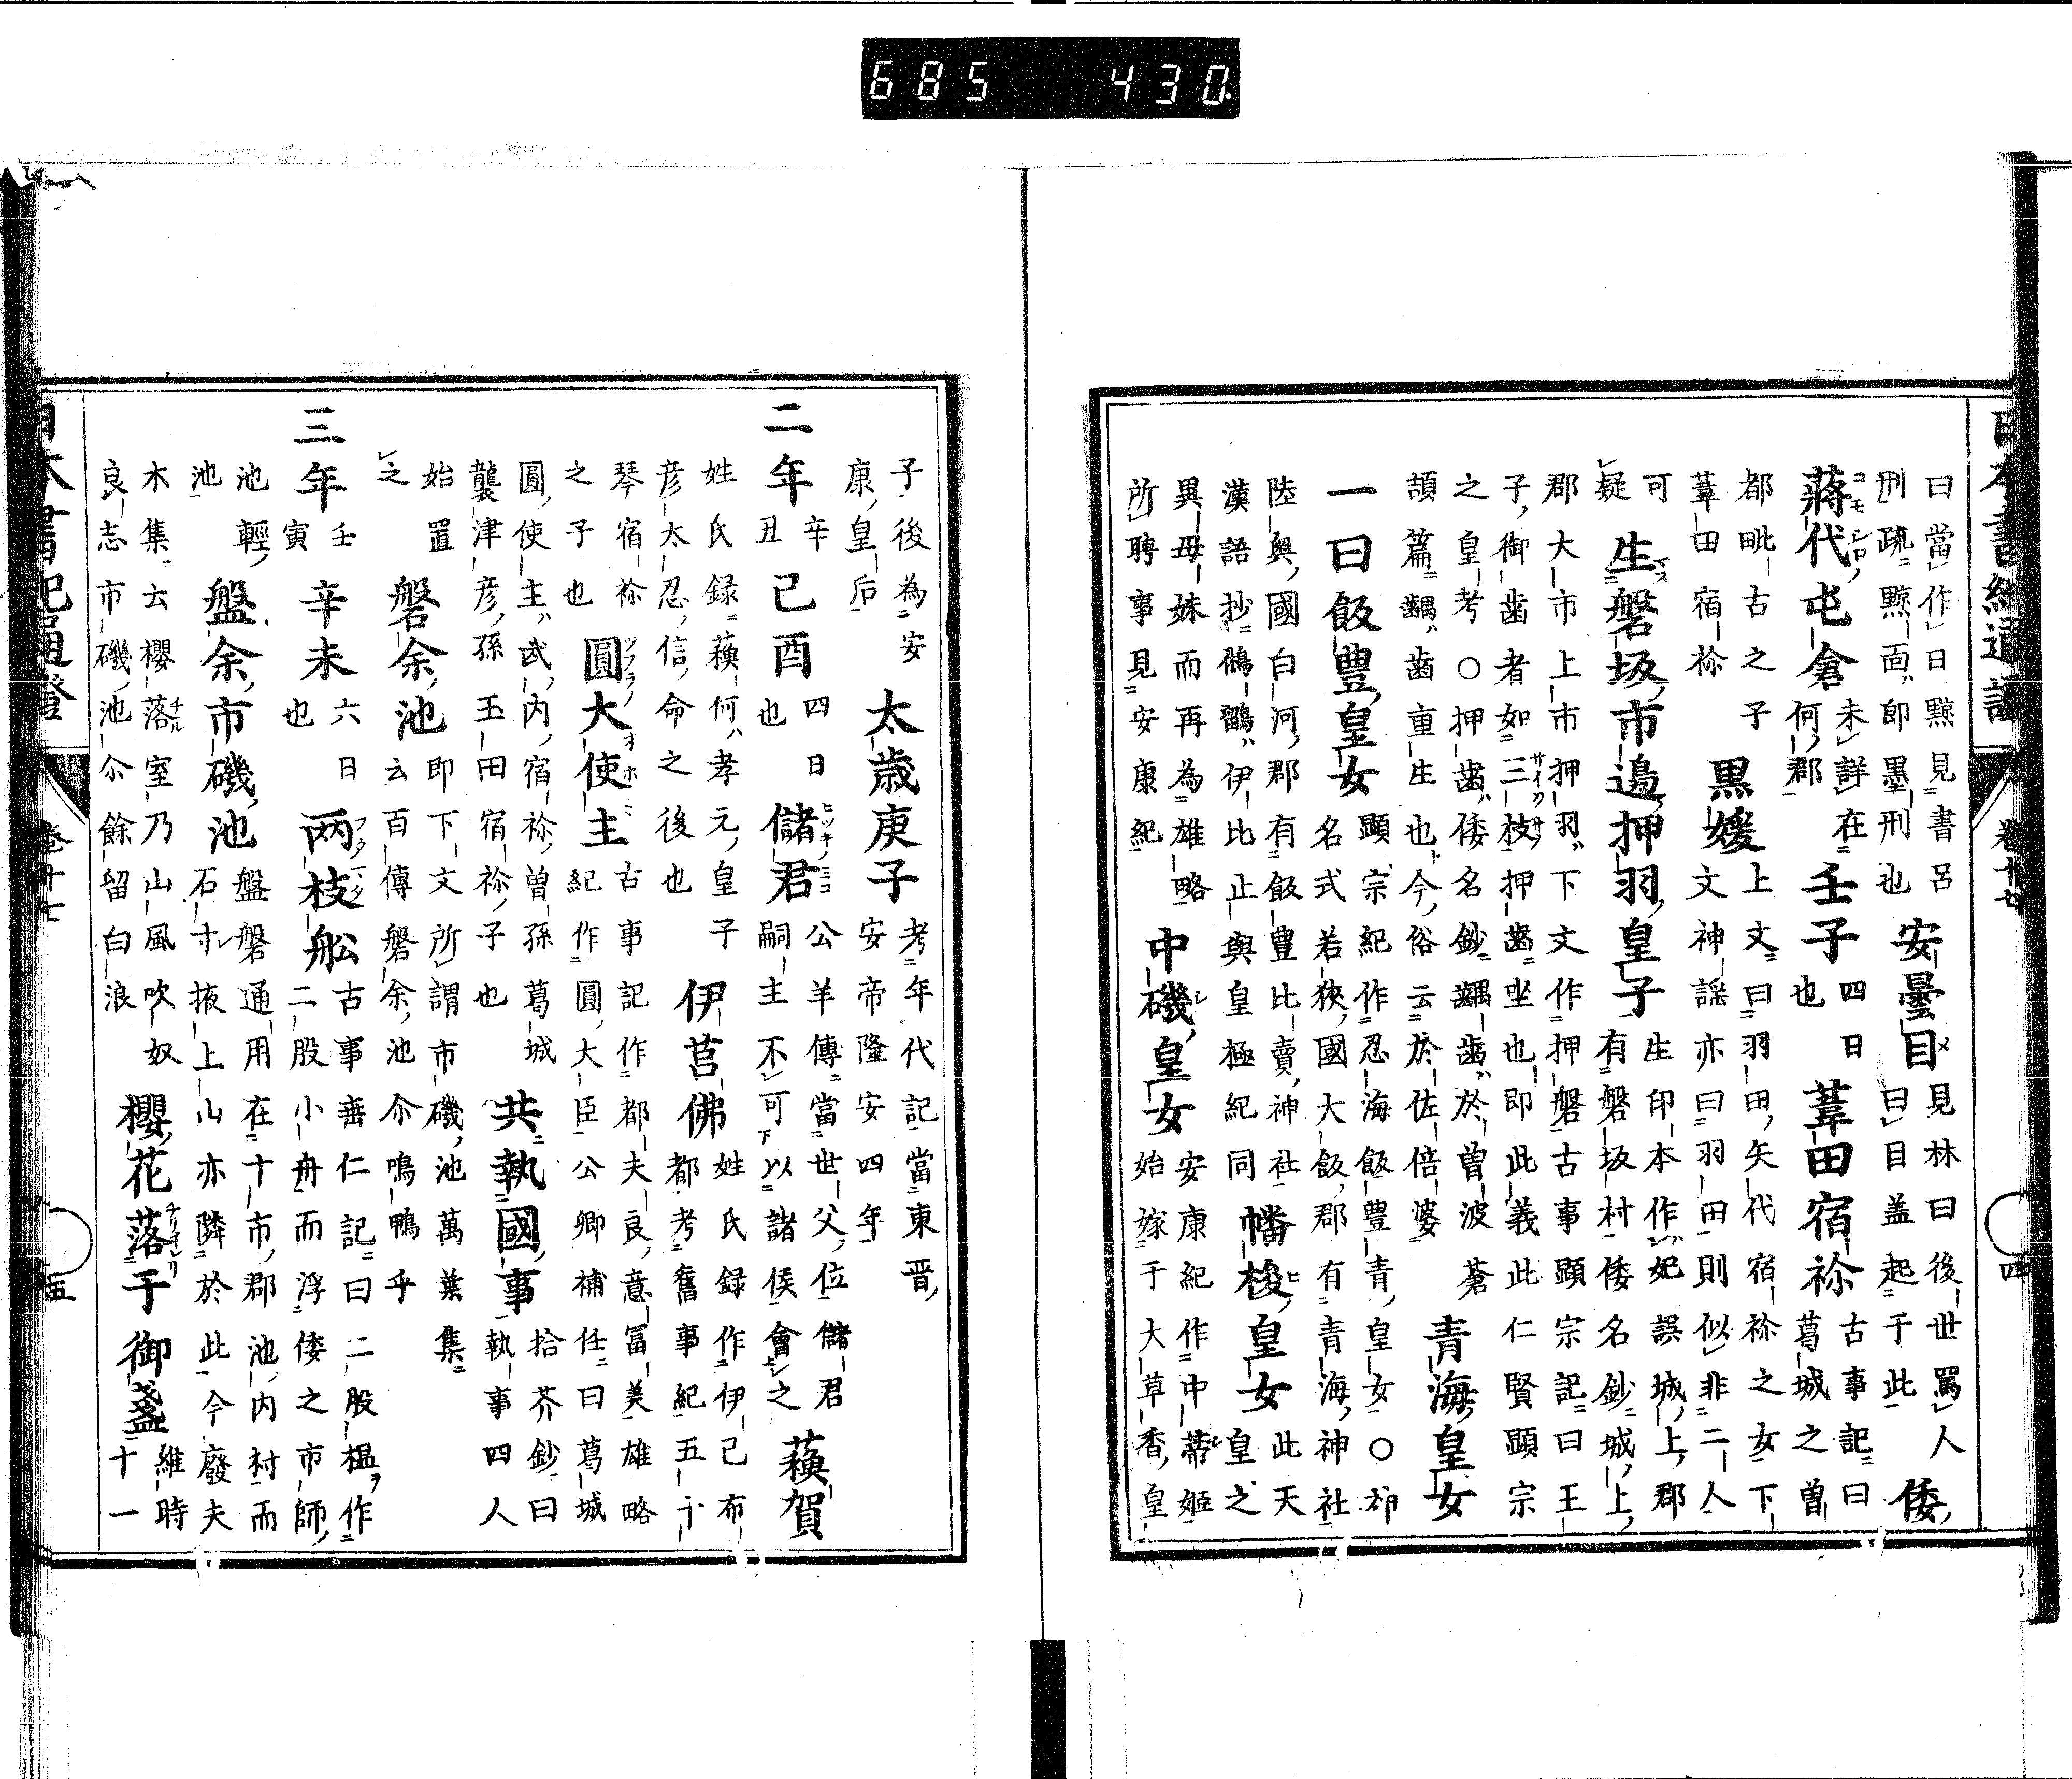 685 430
日本書紀通證 卷十七 四
曰當作日黥見書呂
刑疏黥面即墨刑也
安曇目
見林曰後世罵人
曰目盖起于此
倭
蔣代屯倉
未詳在
何郡
壬子
四日
也
葦田宿祢
古事記曰
葛城之曽
都毗古之子
葦田宿祢
黒媛
上文曰羽田矢代宿祢之女下
文神謡亦曰羽田則似非二人
可
疑
生磐坂市邊押羽皇子
生印本作妃誤城上郡
有磐坂村倭名鈔城上
郡大市上市押羽下文作押磐古事顯宗記曰王
子御歯者如三枝押歯坐也即此義此仁賢顯宗
之皇考○押歯倭名鈔齵歯於曽波蒼
頡篇齵歯重生也今俗云於佐倍婆
青海皇女
一曰飯豊皇女
顯宗紀作忍海飯豊青皇女○卭
名式若狹國大飯郡有青海神社
陸奥國白河郡有飯豊比賣神社
漢語抄鵂鶹伊比止與皇極紀同
幡梭皇女
此天
皇之
異母妹而再為雄略
所聘事見安康紀
中磯皇女
安康紀作中蒂姫
始嫁于大草香皇
子後為安
康皇后
太歳庚子
考年代記當東晋
安帝隆安四年
二年
辛
丑
己酉
四日
也
儲君
公羊傳當世父位儲君
嗣主不可以諸侯會之
蘓賀
姓氏録蘓何孝元皇子
彦太忍信命之後也
伊莒佛
姓氏録作伊己布
都考舊事紀五十
琴宿祢
之子也
圓大使主
古事記作都夫良意冨美雄略
紀作圓大臣公卿補任曰葛城
圓使主武内宿祢曽孫葛城
襲津彦孫玉田宿祢子也
共執國事
拾芥鈔曰
執事四人
始置
之
磐余池
即下文所謂市磯池萬葉集
云百傳磐余池尒鳴鴨乎
三年
壬
寅
辛未
六日
也
兩枝舩
古事垂仁記曰二股榲作
二股小舟而浮倭之市師
池輕
池
盤余市磯池
盤磐通用在十市郡池内村而
石寸掖上山亦隣於此今廢夫
木集云櫻落室乃山風吹奴
良志市磯池尒餘留白浪
櫻花落于御盞
維時
十一
日本書紀通證 卷十七 五